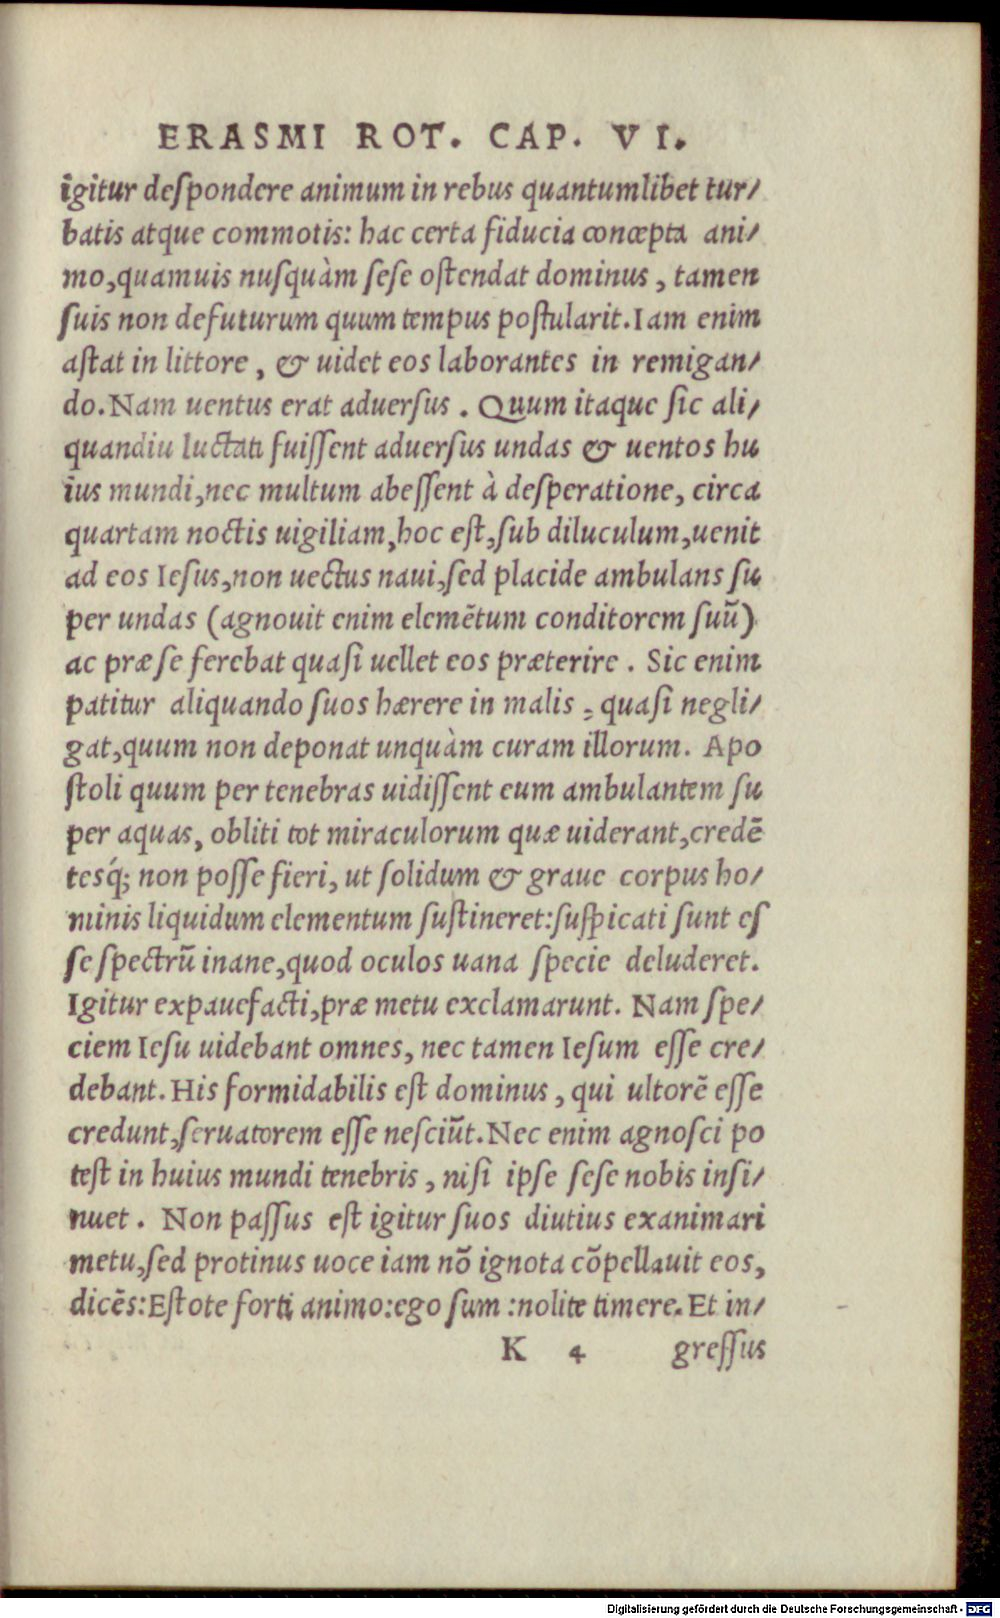 ERASMI ROT. CAP. VI.
igitur deſpondere animum in rebus quantumlibet tur/
batis atque commotis: hac certa fiducia concepta ani/
mo,quamuis nuſquàm ſeſe oſtendat dominus, tamen
ſuis non defuturum quum tempus poſtularit.Iam enim
aſtat in littore, & uidet eos laborantes in remigan/
do.Nam uentus erat aduerſus. Quum itaque ſic ali/
quandiu luctati fuiſſent aduerſus undas & uentos hu
ius mundi,nec multum abeſſent à deſperatione, circa
quartam noctis uigiliam,hoc eſt,ſub diluculum,uenit
ad eos Ieſus,non uectus naui,ſed placide ambulans ſu
per undas (agnouit enim elemẽtum conditorem ſuũ)
ac præ ſe ferebat quaſi uellet eos præterire. Sic enim
patitur aliquando ſuos hærere in malis, quaſi negli/
gat,quum non deponat unquàm curam illorum. Apo
ſtoli quum per tenebras uidiſſent eum ambulantem ſu
per aquas, obliti tot miraculorum quæ uiderant,credẽ
tesq́; non poſſe fieri, ut ſolidum & graue corpus ho/
minis liquidum elementum ſuſtineret:ſuſpicati ſunt eſ
ſe ſpectrũ inane,quod oculos uana ſpecie deluderet.
Igitur expauefacti,præ metu exclamarunt. Nam ſpe/
ciem Ieſu uidebant omnes, nec tamen Ieſum eſſe cre/
debant. His formidabilis eſt dominus, qui ultorẽ eſſe
credunt,ſeruatorem eſſe neſciũt.Nec enim agnoſci po
teſt in huius mundi tenebris, niſi ipſe ſeſe nobis inſi/
nuet. Non paſſus eſt igitur ſuos diutius exanimari
metu,ſed protinus uoce iam nõ ignota cõpellauit eos,
dicẽs:Eſtote forti animo:ego ſum:nolite timere.Et in/
K 4 greſſus
Digitalisierung gefördert durch die Deutsche Forschungsgemeinschaft - DFG